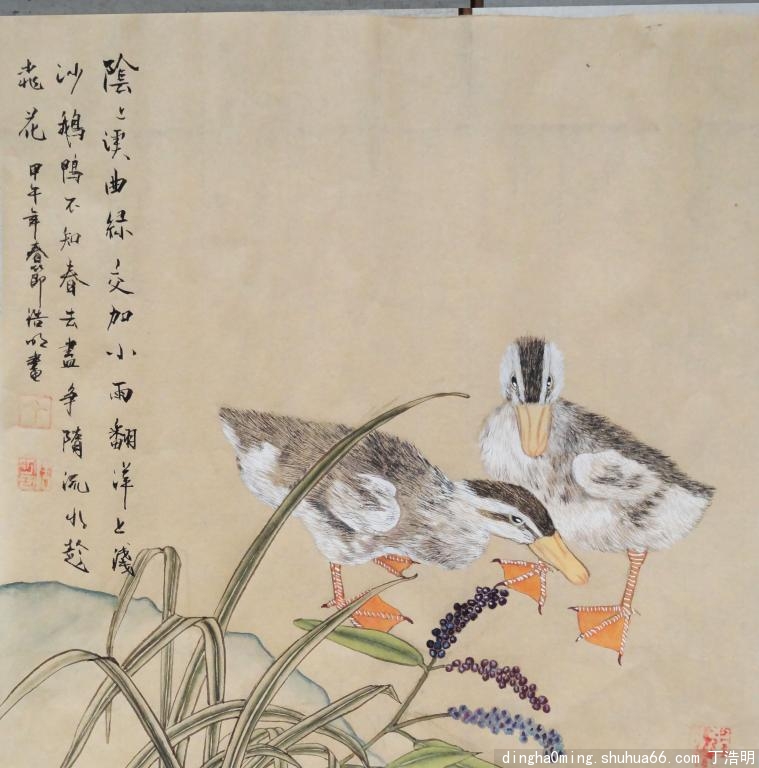 陰々溪曲綠交加小雨翻萍上淺
沙鵝鴨不知春去盡争隨流水趁
桃花 甲午年春節浩明畫
dingha0ming.shuhua66.com 丁浩明